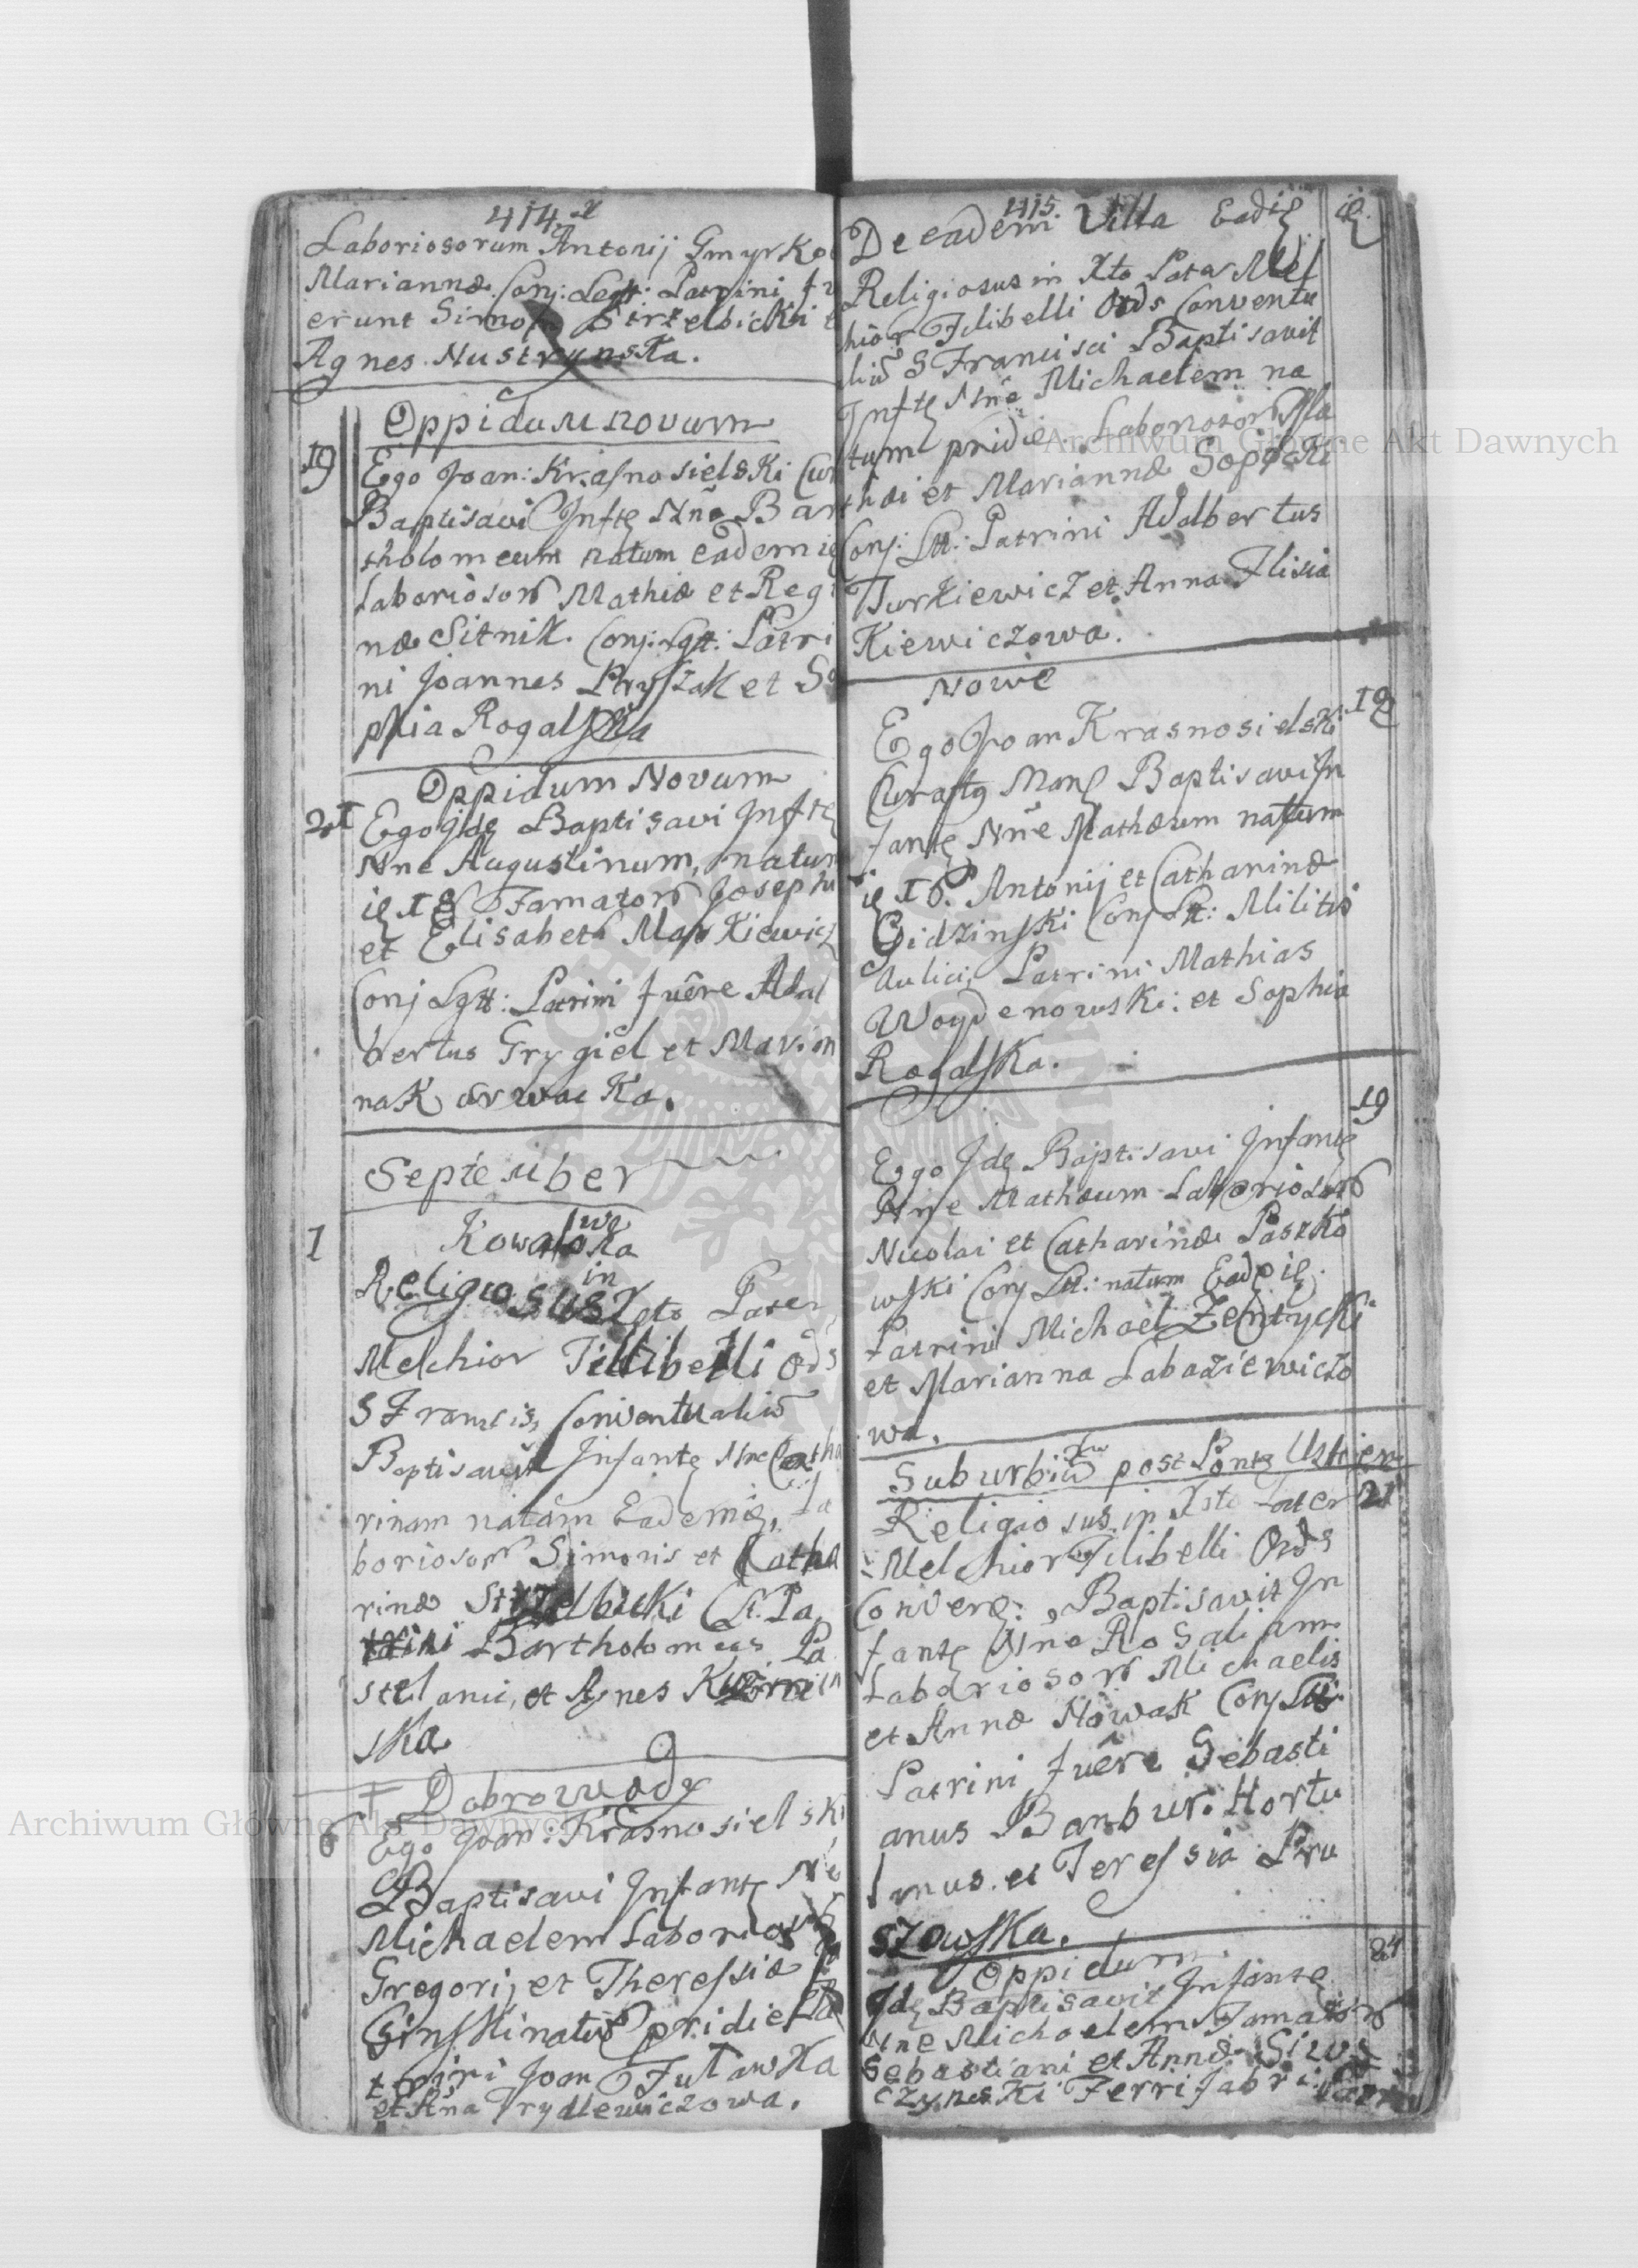 414
Laboriosorum Antonij Gmyrko
Mariannæ Conj: Legtt: Patrini fu
erunt Simon Strzelbicki e
Agnes Nustrynska.
Oppidum novum
19
Ego Joan: Krasnosielski Cur
Baptisavi Inftę Nne Bar
tholomeum natum eadem ię
Laboriosorum Mathiæ et Regi
næ Sitnik. Conj: Lgtt: Patri
ni Joannes Pryszak et So
phia Rogalska
Oppidum Novum
21
Ego Idę Baptisavi Inftę
Nne Augustinum, natum
ię 18 Famatorum Josephi
et Elisabeth Markiewicz
Conj Lgtt: Patrini fuêre Adal
bertus Grygiel et Marian
na Karwacka.
September
1
Kowalowka
Religiosus in Xto Pater
Melchior Filibelli Ords
S Francis, Conventualiũ
Baptisavit Infantę Nne Catha
rinam natam Eadem ię, La
boriosorum Simonis et Catha
rinæ Strzelbicki C Lt. Pa
trini Bartholomeus Pa
stelanic, et Agnes
ska
Dobrowody
6
Ego Joan: Krasnosielski
Baptisavi Infantę Nne
Michaelem Laboriosorum
Gregorij et Theressiæ
Ginski natum pridie Pa
trini Joan Futawka
et Aña Frydlewiczowa.
415.
De eadem Villa Eadię ię.
Religiosus in Xto Pater Mel
hior Filibelli Ords Conventu
liũ S Francisci Baptisavit
Inftę Nne Michaelem na
tum pridie Laboriosorum Ma
thæi et Mariannæ Sopocki
Conj: Ltt: Patrini Adalbertus
Turkiewicz et Anna Ilisia
Kiewiczowa.
Nowe
19
Ego Joan Krasnosielski
Curatg Manę Baptisavi In
fantę Nne Mathæum natum
ię 18. Antonij et Catharinæ
Gidzinski Conj Ltt: Militis
Aulici; Patrini Mathias
Woydenowski: et Sophia
Rogalska.
19
Ego Idę Baptisavi Infantę
Nne Mathæum Laboriosorum
Nicolai et Catharinæ Paszko
wski Conj Ltt: natum Eadę ię.
Patrini Michael Zentycki
et Marianna Labaziewiczo
wa.
Suburbiũ post Pontę Ustien
21
Religiosus in Xsto Pater
Melchior Filibelli Ords
Convenę: Baptisavit In
fantę Nne Rosaliam
Laboriosorum Michaelis
et Annæ Nowak Conj Ltt:
Patrini fuêre Sebasti
anus Banbur. Hortu
lanus. et Teressia Pru
szowska.
Oppidum
24
Idę Baptisavit Infantę
Nne Michaelem Famatorum
Sebastiani et Annæ Siw
czynski Ferri fabri Patri
Archiwum Główne Akt Dawnych
Archiwum Główne Akt Dawnych